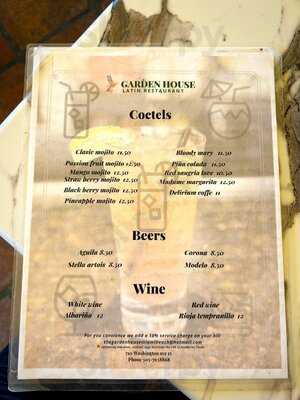 GARDEN HOUSE
LATIN RESTAURANT
Coctels
Clasic mojito 11.50
Passion fruit mojito 12.50
Mango mojito 12.50
Straw berry mojito 12.50
Black berry mojito 12.50
Pineapple mojito 12.50
Bloody mary 11.50
Piña colada 11.50
Red sangria love 10.50
Madame margarita 12.50
Delirium coffe 11
Beers
Aguila 8.50
Stella artois 8.50
Corona 8.50
Modelo 8.50
Wine
White wine
Albariño 12
Red wine
Rioja tempranillo 12
For you convience we add a 18% service charge on your bill
710 Washington ave